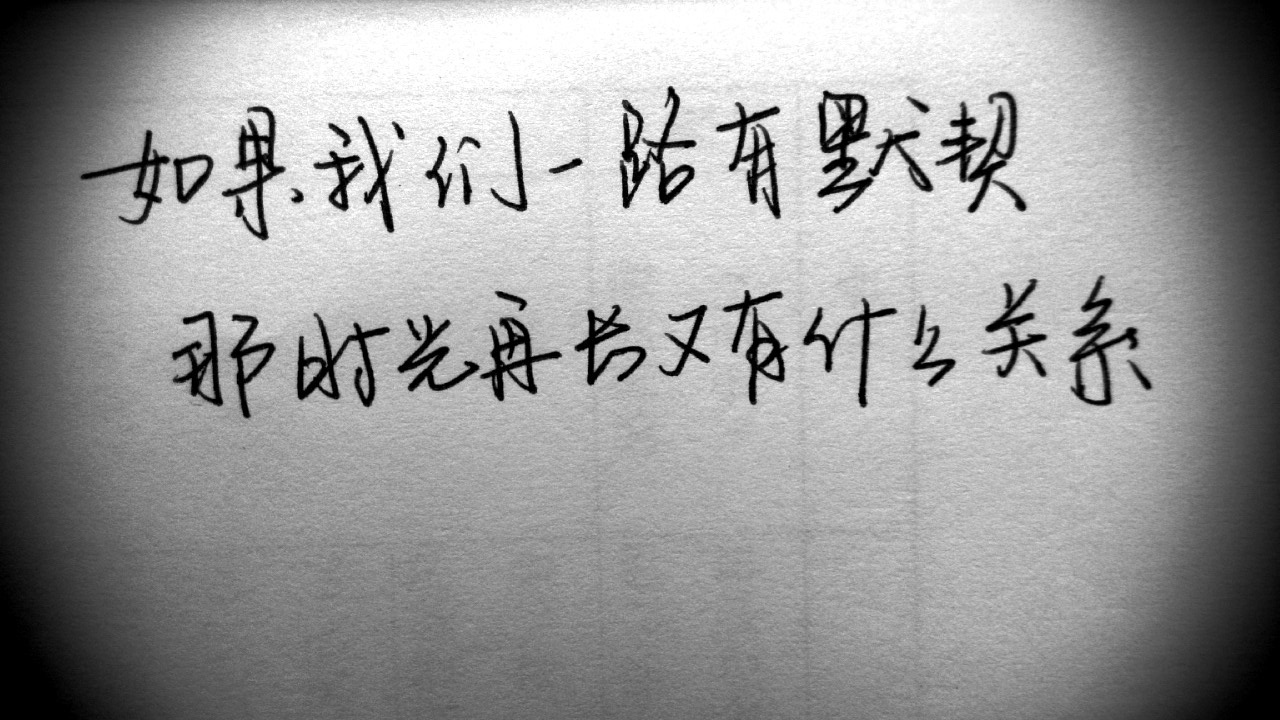 如果我们一路有默契
那时光再长又有什么关系